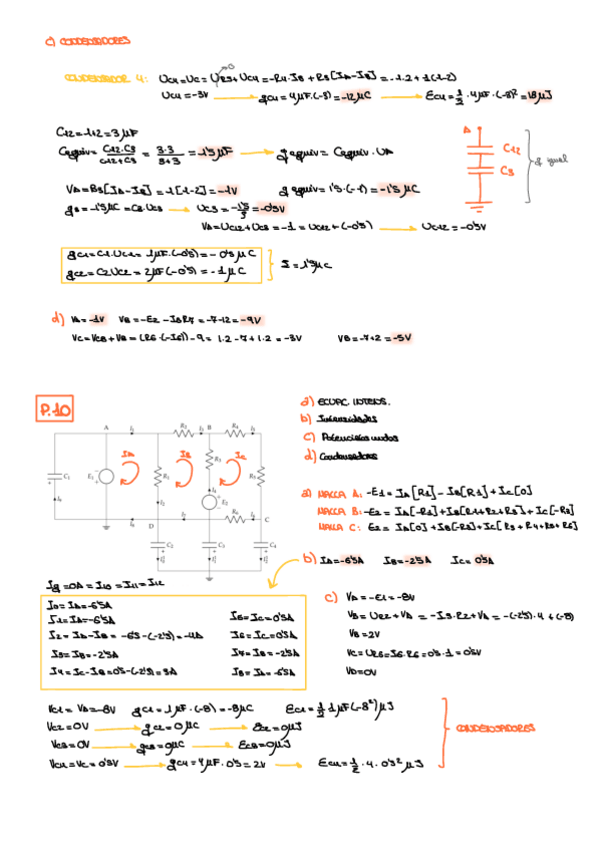 c) CONDENSADORES
CONDENSADOR 4: UC4=UC=UR3+UC4=-R4·IB+R3[IA-IB]=-1·2+1(1-2)
UC4=-3V → qC4=4μF·(-3)=-12μC → EC4=1/2·4μF·(-3)²=18μJ
C12=1+2=3μF
Cequiv=C12·C3/C12+C3=3·3/3+3=1'5μF → qequiv=Cequiv·VA
A
C12
C3
q igual
VA=R3[IA-IB]=1[1-2]=-1V qequiv=1'5·(-1)=-1'5μC
q3=-1'5μC=C3·UC3 → UC3=-1'5/3=-0'5V
VA=UC12+UC3=-1=UC12+(-0'5) → UC12=-0'5V
qC1=C1·UC1=1μF·(-0'5)=-0'5μC
qC2=C2UC2=2μF(-0'5)=-1μC
Σ=1'5μC
d) VA=-1V VB=-E2-IBR7=-7-1·2=-9V
VC=VCB+VB=(R6·(-I6))-9=1·2-7+1·2=-3V VB=-7+2=-5V
P.10
a) ECUAC. INTENS.
b) Intensidades
c) Potenciales nudos
d) Condensadores
A I1 R2 I3 B R4 I5
IA IB IC
C1 E1 R1 R3 R5
I2 I4 E2
I8 I7 R6 I6 C
D
C2 C3 C4
a) MALLA A: -E1=IA[R1]-IB[R1]+IC[0]
MALLA B: -E2=IA[-R1]+IB[R1+R2+R3]+IC[-R3]
MALLA C: E2=IA[0]+IB[-R3]+IC[R3+R4+R5+R6]
b) IA=-6'5A IB=-2'5A IC=0'5A
I9=0A=I10=I11=I12
I1=IA=-6'5A
I2=IA-IB=-6'5-(-2'5)=-4A
I3=IB=-2'5A
I4=IC-IB=0'5-(-2'5)=3A
I5=IC=0'5A
I6=IC=0'5A
I7=IB=-2'5A
I8=IA=-6'5A
c) VA=-E1=-8V
VB=UR2+VA=-I3·R2+VA=-(-2'5)·4+(-8)
VB=2V
VC=UR6=I6·R6=0'5·1=0'5V
VD=0V
VC1=VA=-8V qC1=1μF·(-8)=-8μC EC1=1/2·1μF(-8²)μJ
VC2=0V → qC2=0μC → EC2=0μJ
VC3=0V → qC3=0μC → EC3=0μJ
VC4=VC=0'5V → qC4=4μF·0'5=2V → EC4=1/2·4·0'5²μJ
CONDENSADORES